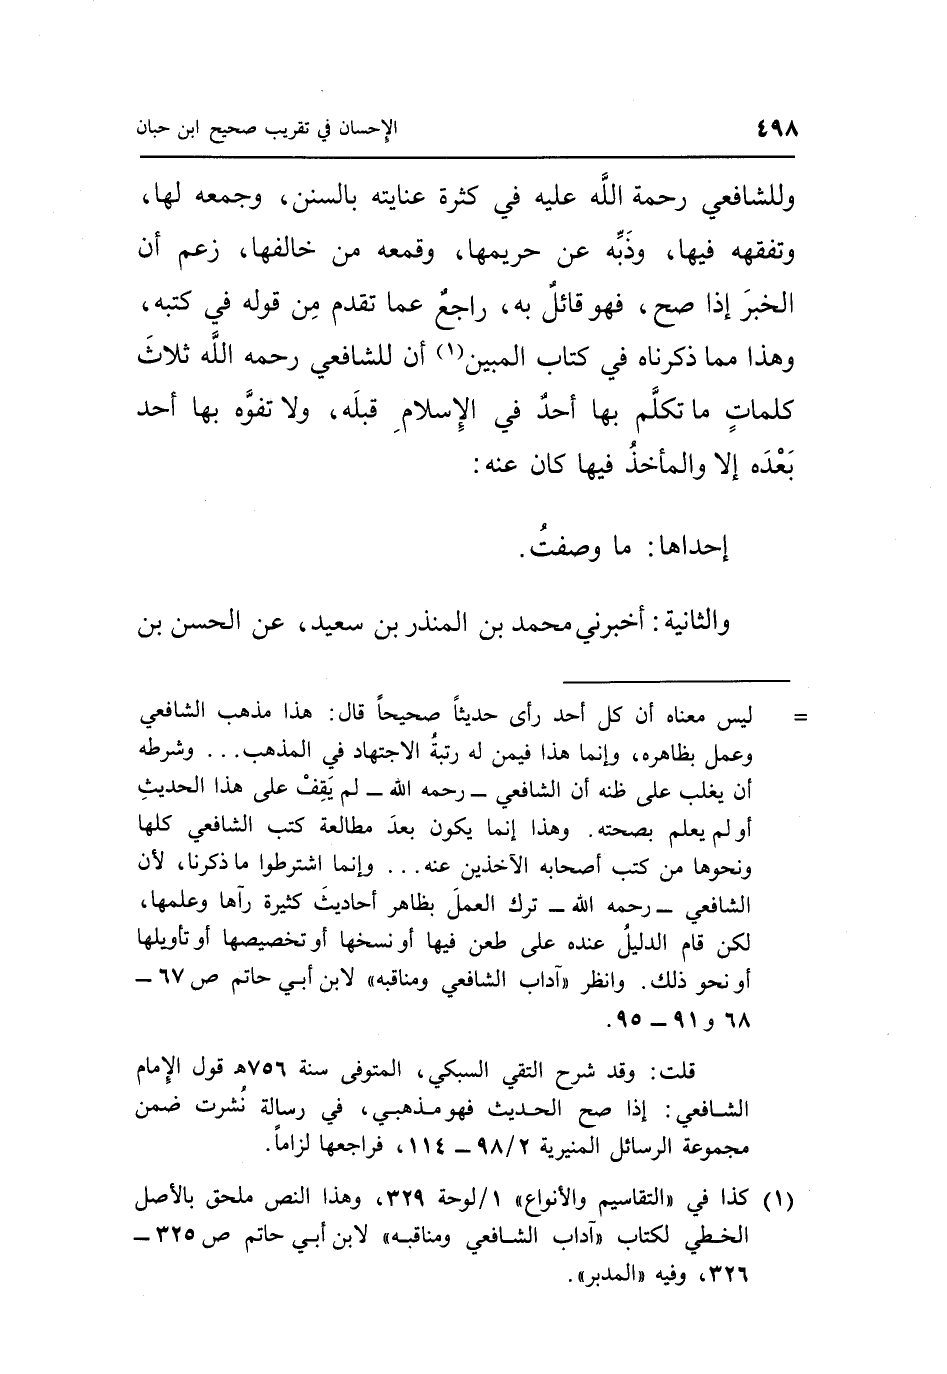 ٤٩٨ الإحسان في تقريب صحيح ابن حبان
وللشافعي رحمة اللَّه عليه في كثرة عنايته بالسنن، وجمعه لها،
وتفقهه فيها، وذَبِّه عن حريمها، وقمعه من خالفها، زعم أن
الخبرَ إذا صح، فهو قائلٌ به، راجعٌ عما تقدم مِن قوله في كتبه،
وهذا مما ذكرناه في كتاب المبين(١) أن للشافعي رحمه اللَّه ثلاثَ
كلماتٍ ما تكلَّم بها أحدٌ في الإِسلامِ قبلَه، ولا تفوَّه بها أحد
بَعْدَه إلا والمأخذُ فيها كان عنه:
إحداها: ما وصفتُ.
والثانية: أخبرني محمد بن المنذر بن سعيد، عن الحسن بن
= ليس معناه أن كل أحد رأى حديثاً صحيحاً قال: هذا مذهب الشافعي
وعمل بظاهره، وإنما هذا فيمن له رتبةُ الاجتهاد في المذهب... وشرطه
أن يغلب على ظنه أن الشافعي ــ رحمه الله ــ لم يَقِفْ على هذا الحديثِ
أو لم يعلم بصحته. وهذا إنما يكون بعدَ مطالعة كتب الشافعي كلها
ونحوها من كتب أصحابه الآخذين عنه... وإنما اشترطوا ما ذكرنا، لأن
الشافعي ــ رحمه الله ــ ترك العملَ بظاهر أحاديثَ كثيرة رآها وعلمها،
لكن قام الدليلُ عنده على طعن فيها أو نسخها أو تخصيصها أو تأويلها
أو نحو ذلك. وانظر «آداب الشافعي ومناقبه» لابن أبي حاتم ص ٦٧ ــ
٦٨ و ٩١ ــ ٩٥.
قلت: وقد شرح التقي السبكي، المتوفى سنة ٧٥٦هـ قول الإِمام
الشافعي: إذا صح الحديث فهو مذهبي، في رسالة نُشرت ضمن
مجموعة الرسائل المنيرية ٢/ ٩٨ ــ ١١٤، فراجعها لزاماً.
(١) كذا في «التقاسيم والأنواع» ١/ لوحة ٣٢٩، وهذا النص ملحق بالأصل
الخطي لكتاب «آداب الشافعي ومناقبه» لابن أبي حاتم ص ٣٢٥ ــ
٣٢٦، وفيه «المدبر».